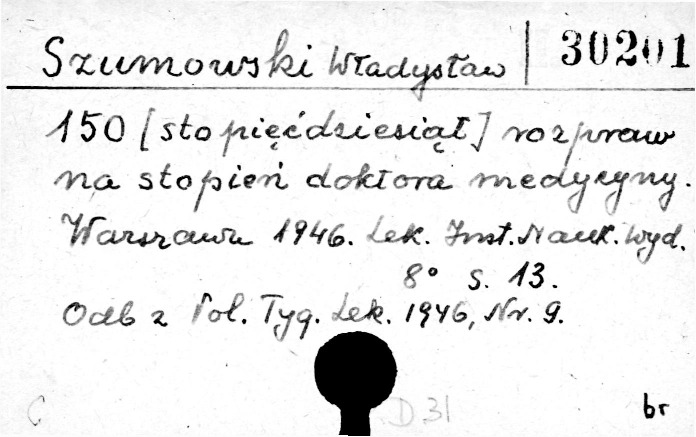 Szumowski Władysław 30201
150 [sto pięćdziesiąt] rozpraw
na stopień doktora medycyny.
Warszawa 1946. Lek. Inst. Nauk. Wyd.
8° s. 13.
Odb z Pol. Tyg. Lek. 1946, Nr. 9.
C D 31 br